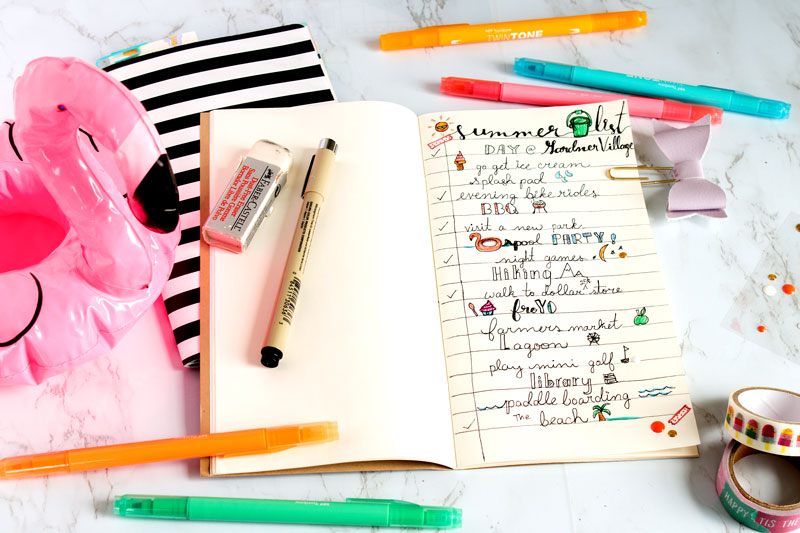 TWINTONE
summer list
DAY @ Gardner Village
go get ice cream
splash pad
evening bike rides
BBQ
visit a new park
pool PARTY!
night games
Hiking
walk to dollar store
froYO
farmers market
Lagoon
play mini golf
library
paddle boarding
The beach
FABER-CASTELL
Dust-Free Eraser
HAPPY
'TIS THE